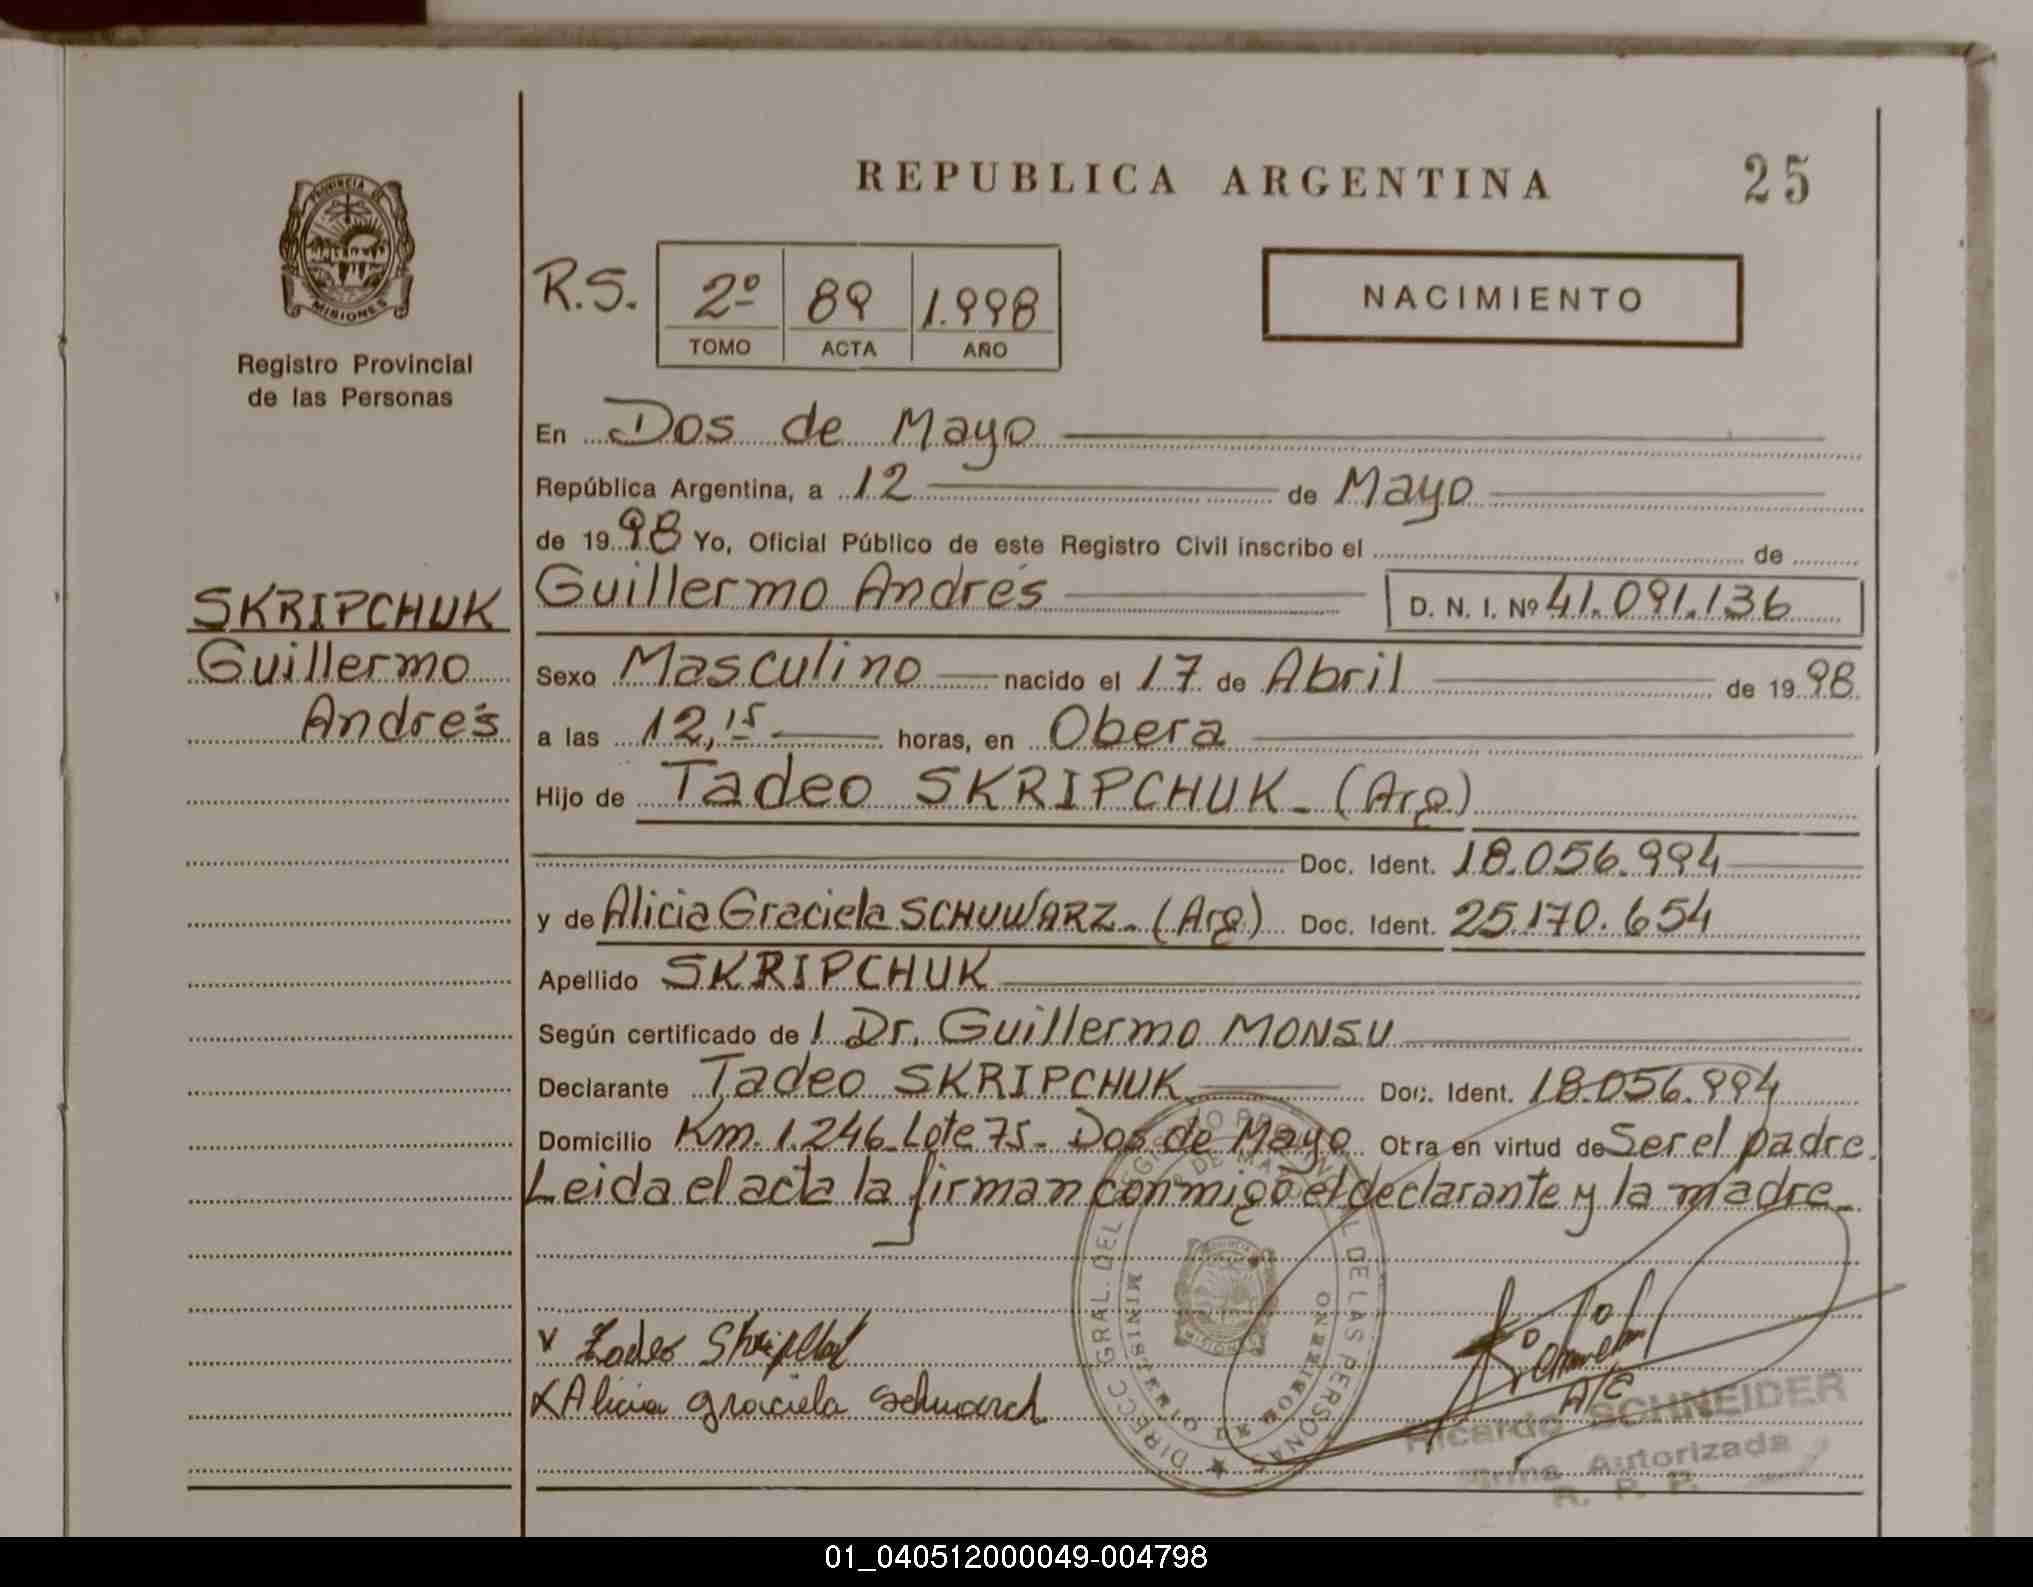 REPUBLICA ARGENTINA
25
PROVINCIA DE
MISIONES
Registro Provincial
de las Personas
R.S.
2º 89 1.998
TOMO ACTA AÑO
NACIMIENTO
En Dos de Mayo
República Argentina, a 12 de Mayo
de 1998 Yo, Oficial Público de este Registro Civil inscribo el de
SKRIPCHUK
Guillermo
Andrés
Guillermo Andrés D. N. I. Nº 41.091.136
Sexo Masculino nacido el 17 de Abril de 1998
a las 12,15 horas, en Obera
Hijo de Tadeo SKRIPCHUK - (Arg)
Doc. Ident. 18.056.994
y de Alicia Graciela SCHUWARZ - (Arg) Doc. Ident. 25.170.654
Apellido SKRIPCHUK
Según certificado de 1 Dr. Guillermo MONSU
Declarante Tadeo SKRIPCHUK Doc. Ident. 18.056.994
Domicilio Km. 1.246 Lote 75 - Dos de Mayo Otra en virtud de Ser el padre.
Leida el acta la firman conmigo el declarante y la madre -
DIRECC GRAL. DEL REGISTRO PROVINCIAL DE LAS PERSONAS
MINISTERIO DE GOBIERNO
Tadeo
Alicia graciela
A/C
Ricardo SCHNEIDER
Firma Autorizada
R. P. P.
01_040512000049-004798